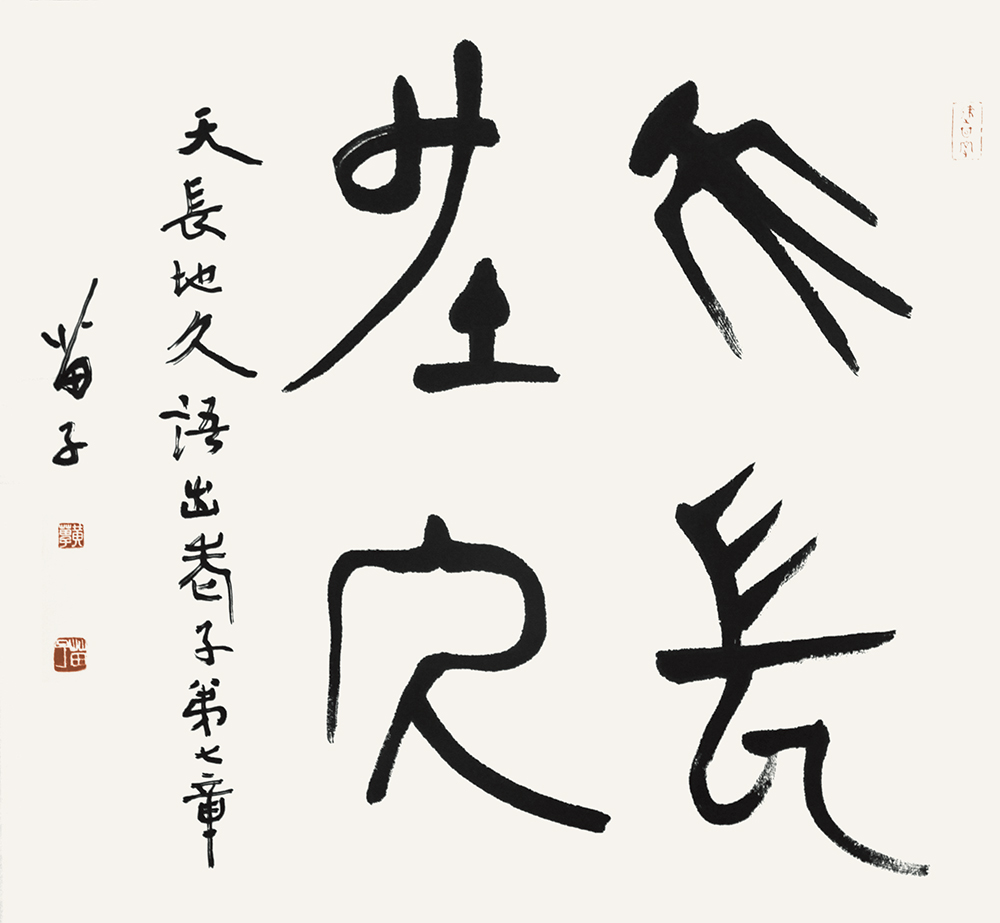 天長
地久
天長地久語出老子第七章
苗子
黃
苗